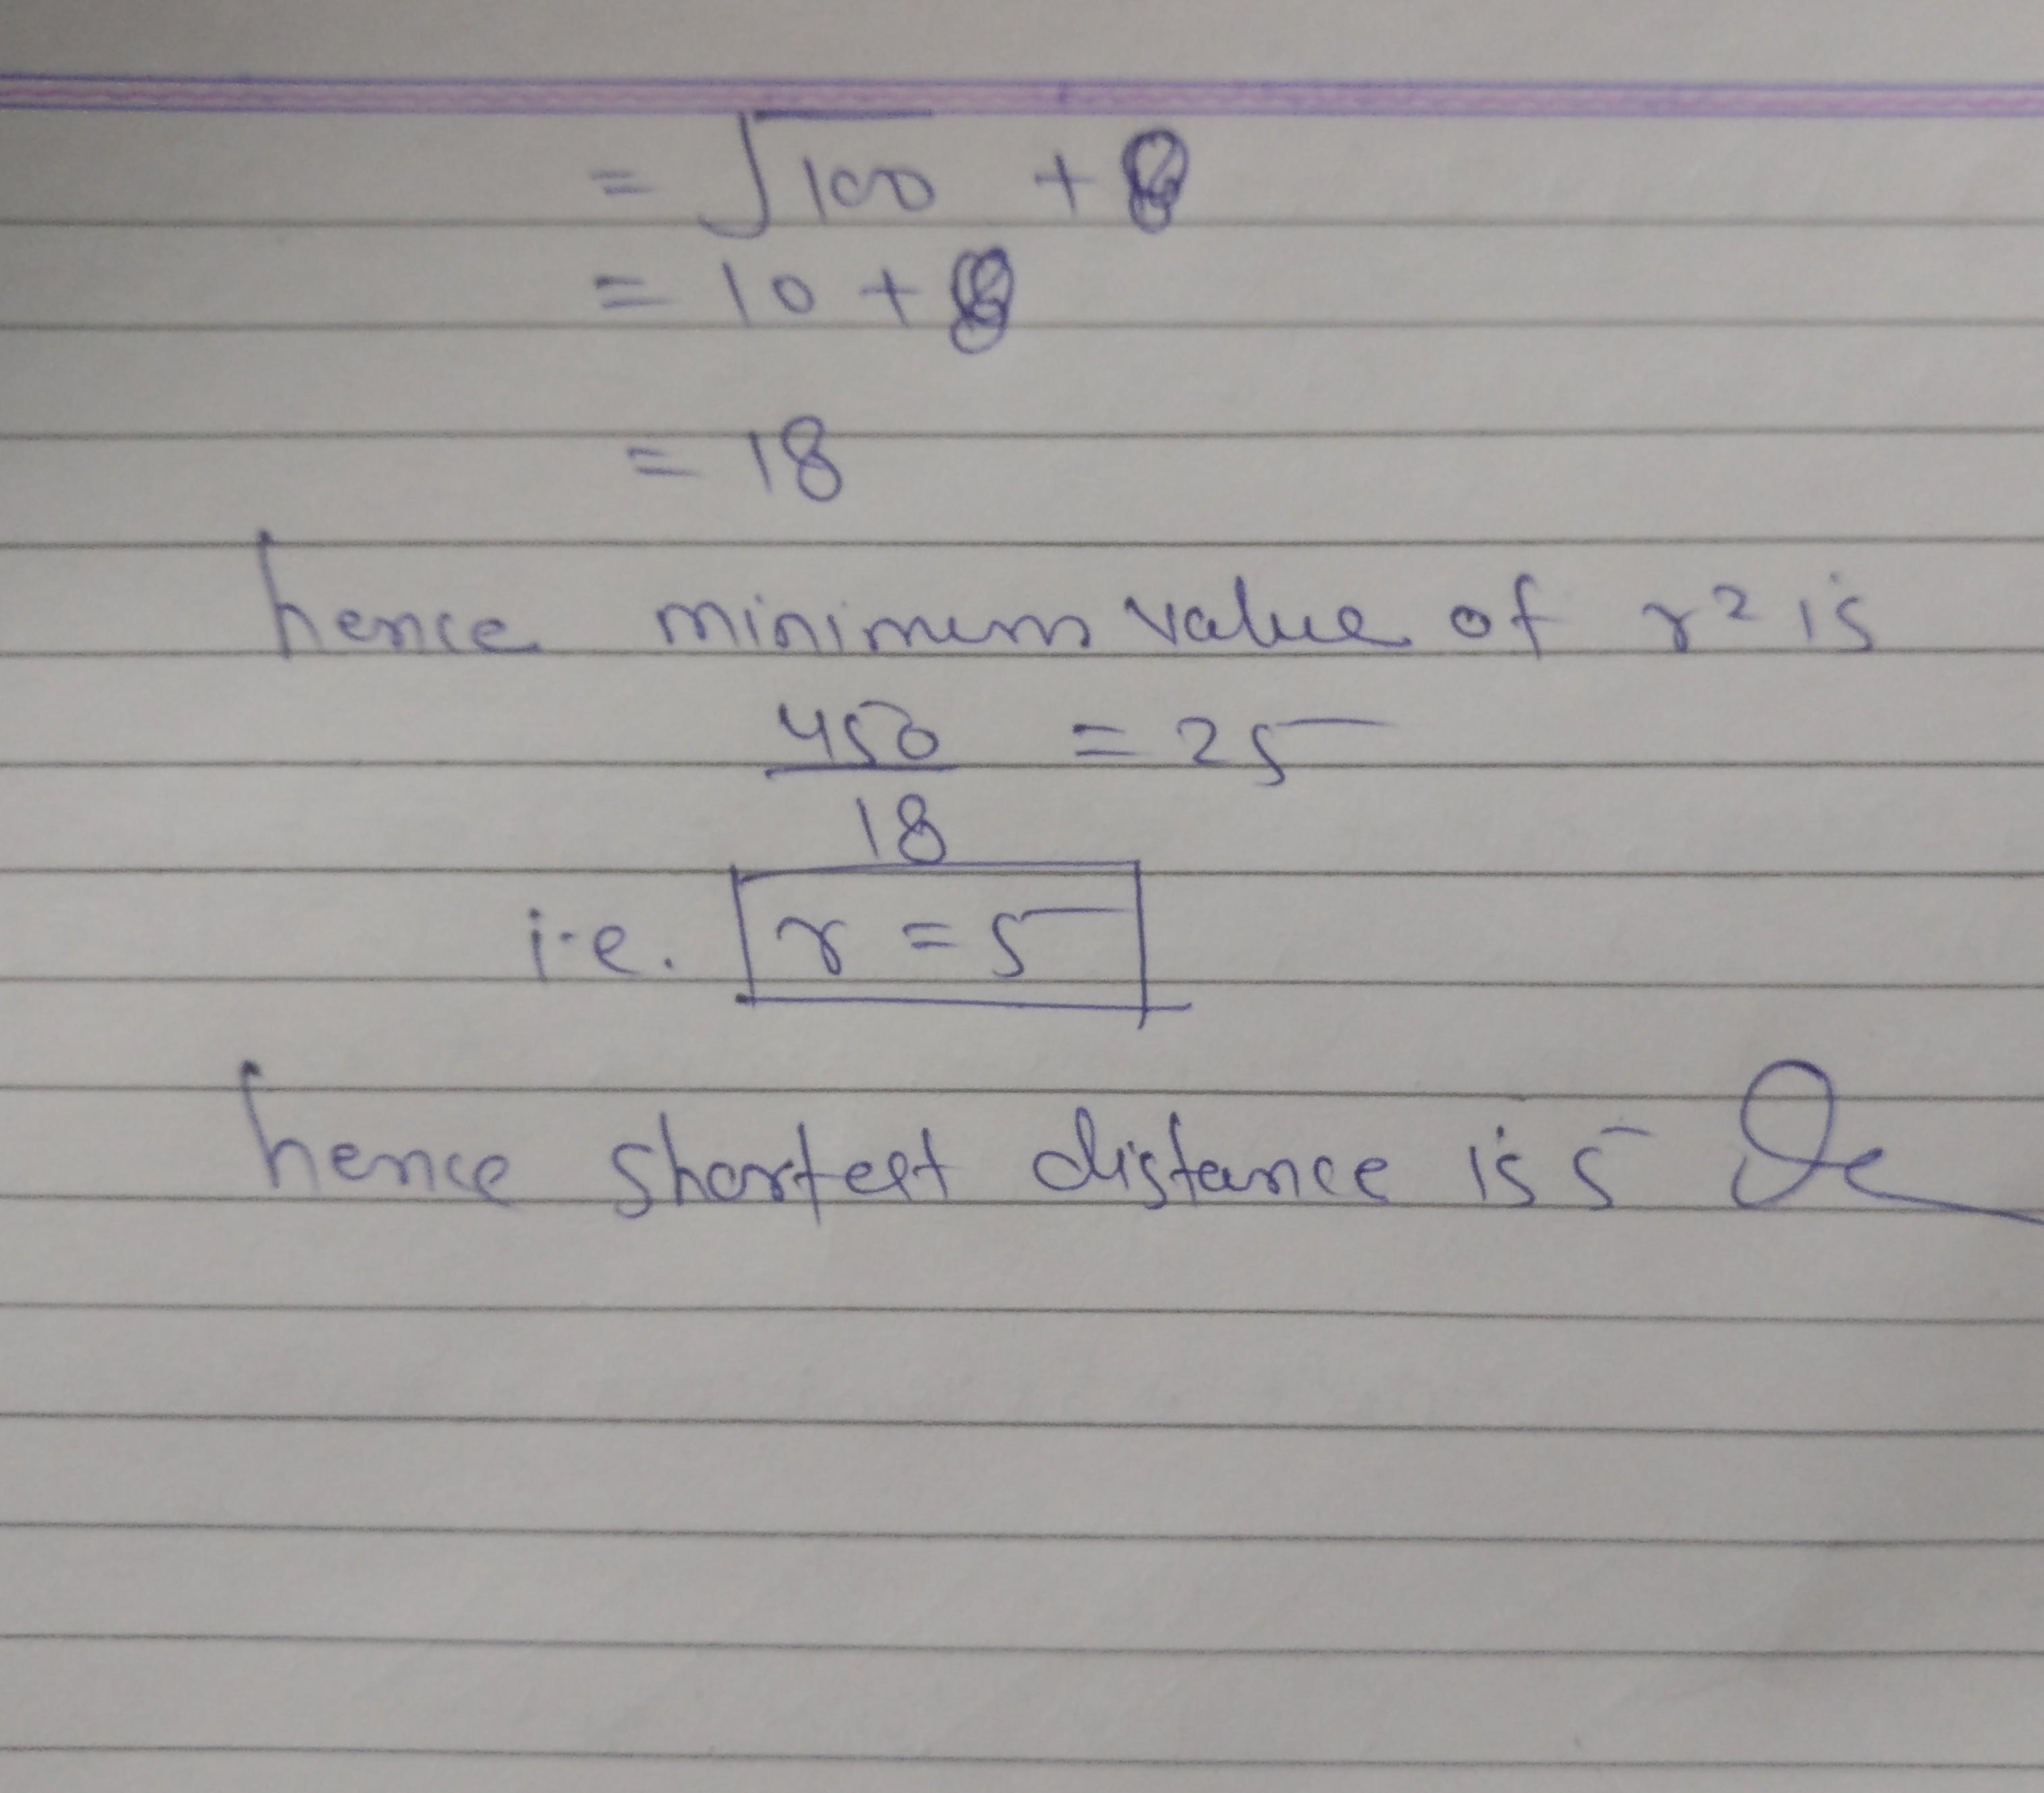 = √100 + 8
= 10 + 8
= 18
hence minimum value of r² is
450/18 = 25
i.e. r = 5
hence shortest distance is 5